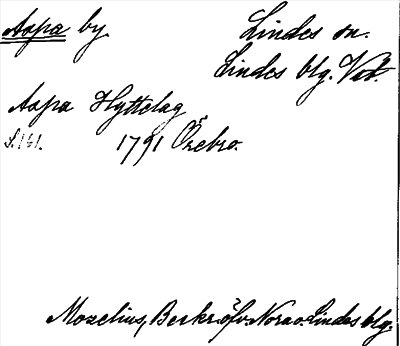 Aspa by.
Lindes sn.
Lindes blg. Vstl.
Aspa Hyttelag
S. 161.
1791 Örebro.
Mozelius, Beskr. öfv. Nora o. Lindes blg.